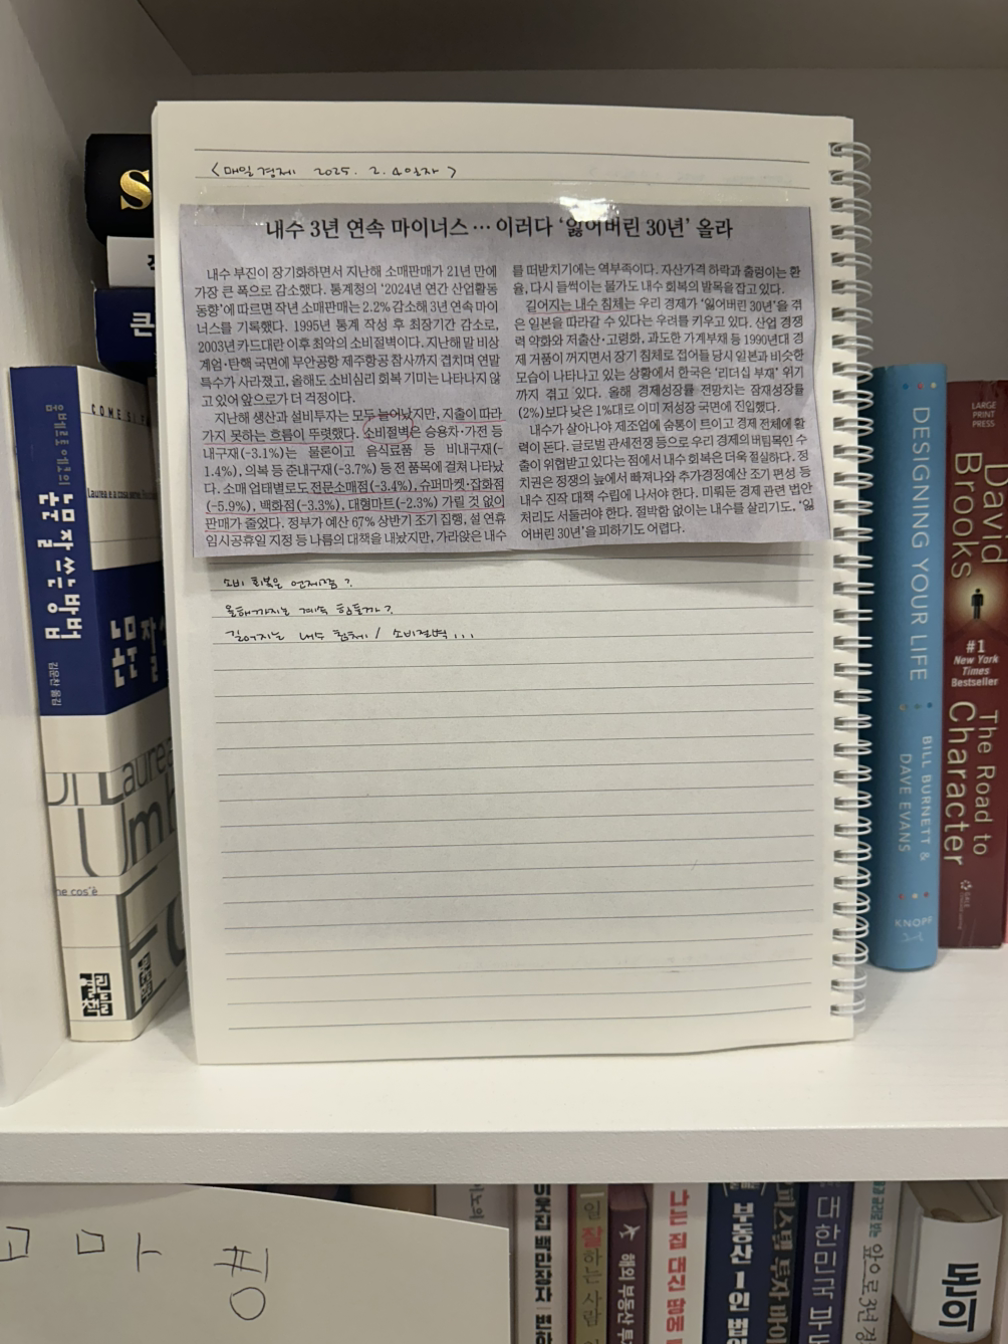 <매일경제 2025. 2. 4일자>
내수 3년 연속 마이너스… 이러다 ‘잃어버린 30년’ 올라
내수 부진이 장기화하면서 지난해 소매판매가 21년 만에
가장 큰 폭으로 감소했다. 통계청의 ‘2024년 연간 산업활동
동향’에 따르면 작년 소매판매는 2.2% 감소해 3년 연속 마이
너스를 기록했다. 1995년 통계 작성 후 최장기간 감소로,
2003년 카드대란 이후 최악의 소비절벽이다. 지난해 말 비상
계엄·탄핵 국면에 무안공항 제주항공 참사까지 겹치며 연말
특수가 사라졌고, 올해도 소비심리 회복 기미는 나타나지 않
고 있어 앞으로가 더 걱정이다.
지난해 생산과 설비투자는 모두 늘어났지만, 지출이 따라
가지 못하는 흐름이 뚜렷했다. 소비절벽은 승용차·가전 등
내구재(-3.1%)는 물론이고 음식료품 등 비내구재(-
1.4%), 의복 등 준내구재(-3.7%) 등 전 품목에 걸쳐 나타났
다. 소매 업태별로도 전문소매점(-3.4%), 슈퍼마켓·잡화점
(-5.9%), 백화점(-3.3%), 대형마트(-2.3%) 가릴 것 없이
판매가 줄었다. 정부가 예산 67% 상반기 조기 집행, 설 연휴
임시공휴일 지정 등 나름의 대책을 내놨지만, 가라앉은 내수
를 떠받치기에는 역부족이다. 자산가격 하락과 출렁이는 환
율, 다시 들썩이는 물가도 내수 회복의 발목을 잡고 있다.
길어지는 내수 침체는 우리 경제가 ‘잃어버린 30년’을 겪
은 일본을 따라갈 수 있다는 우려를 키우고 있다. 산업 경쟁
력 악화와 저출산·고령화, 과도한 가계부채 등 1990년대 경
제 거품이 꺼지면서 장기 침체로 접어들 당시 일본과 비슷한
모습이 나타나고 있는 상황에서 한국은 ‘리더십 부재’ 위기
까지 겪고 있다. 올해 경제성장률 전망치는 잠재성장률
(2%)보다 낮은 1%대로 이미 저성장 국면에 진입했다.
내수가 살아나야 제조업에 숨통이 트이고 경제 전체에 활
력이 돈다. 글로벌 관세전쟁 등으로 우리 경제의 버팀목인 수
출이 위협받고 있다는 점에서 내수 회복은 더욱 절실하다. 정
치권은 정쟁의 늪에서 빠져나와 추가경정예산 조기 편성 등
내수 진작 대책 수립에 나서야 한다. 미뤄둔 경제 관련 법안
처리도 서둘러야 한다. 절박함 없이는 내수를 살리기도, ‘잃
어버린 30년’을 피하기도 어렵다.
소비 회복은 언제쯤?
올해까지는 계속 힘들까?
길어지는 내수 침체 / 소비절벽...
S
큰
움베르토 에코의
논문 잘 쓰는 방법
김운찬 옮김
COME SI F
논문 잘
Laurea
Umb
he cos'è
Ec
열린책들
DESIGNING YOUR LIFE
BILL BURNETT &
DAVE EVANS
KNOPF
LARGE
PRINT
PRESS
David
Brooks
#1
New York
Times
Bestseller
The Road to
Character
고마풍
이웃집 백만장자
변하
일 잘하는 사람
해외 부동산 투
나는 집 대신 땅에
부동산 1인 법
스템 투자 바이
대한민국 부
앞으로 3년 경
돈의